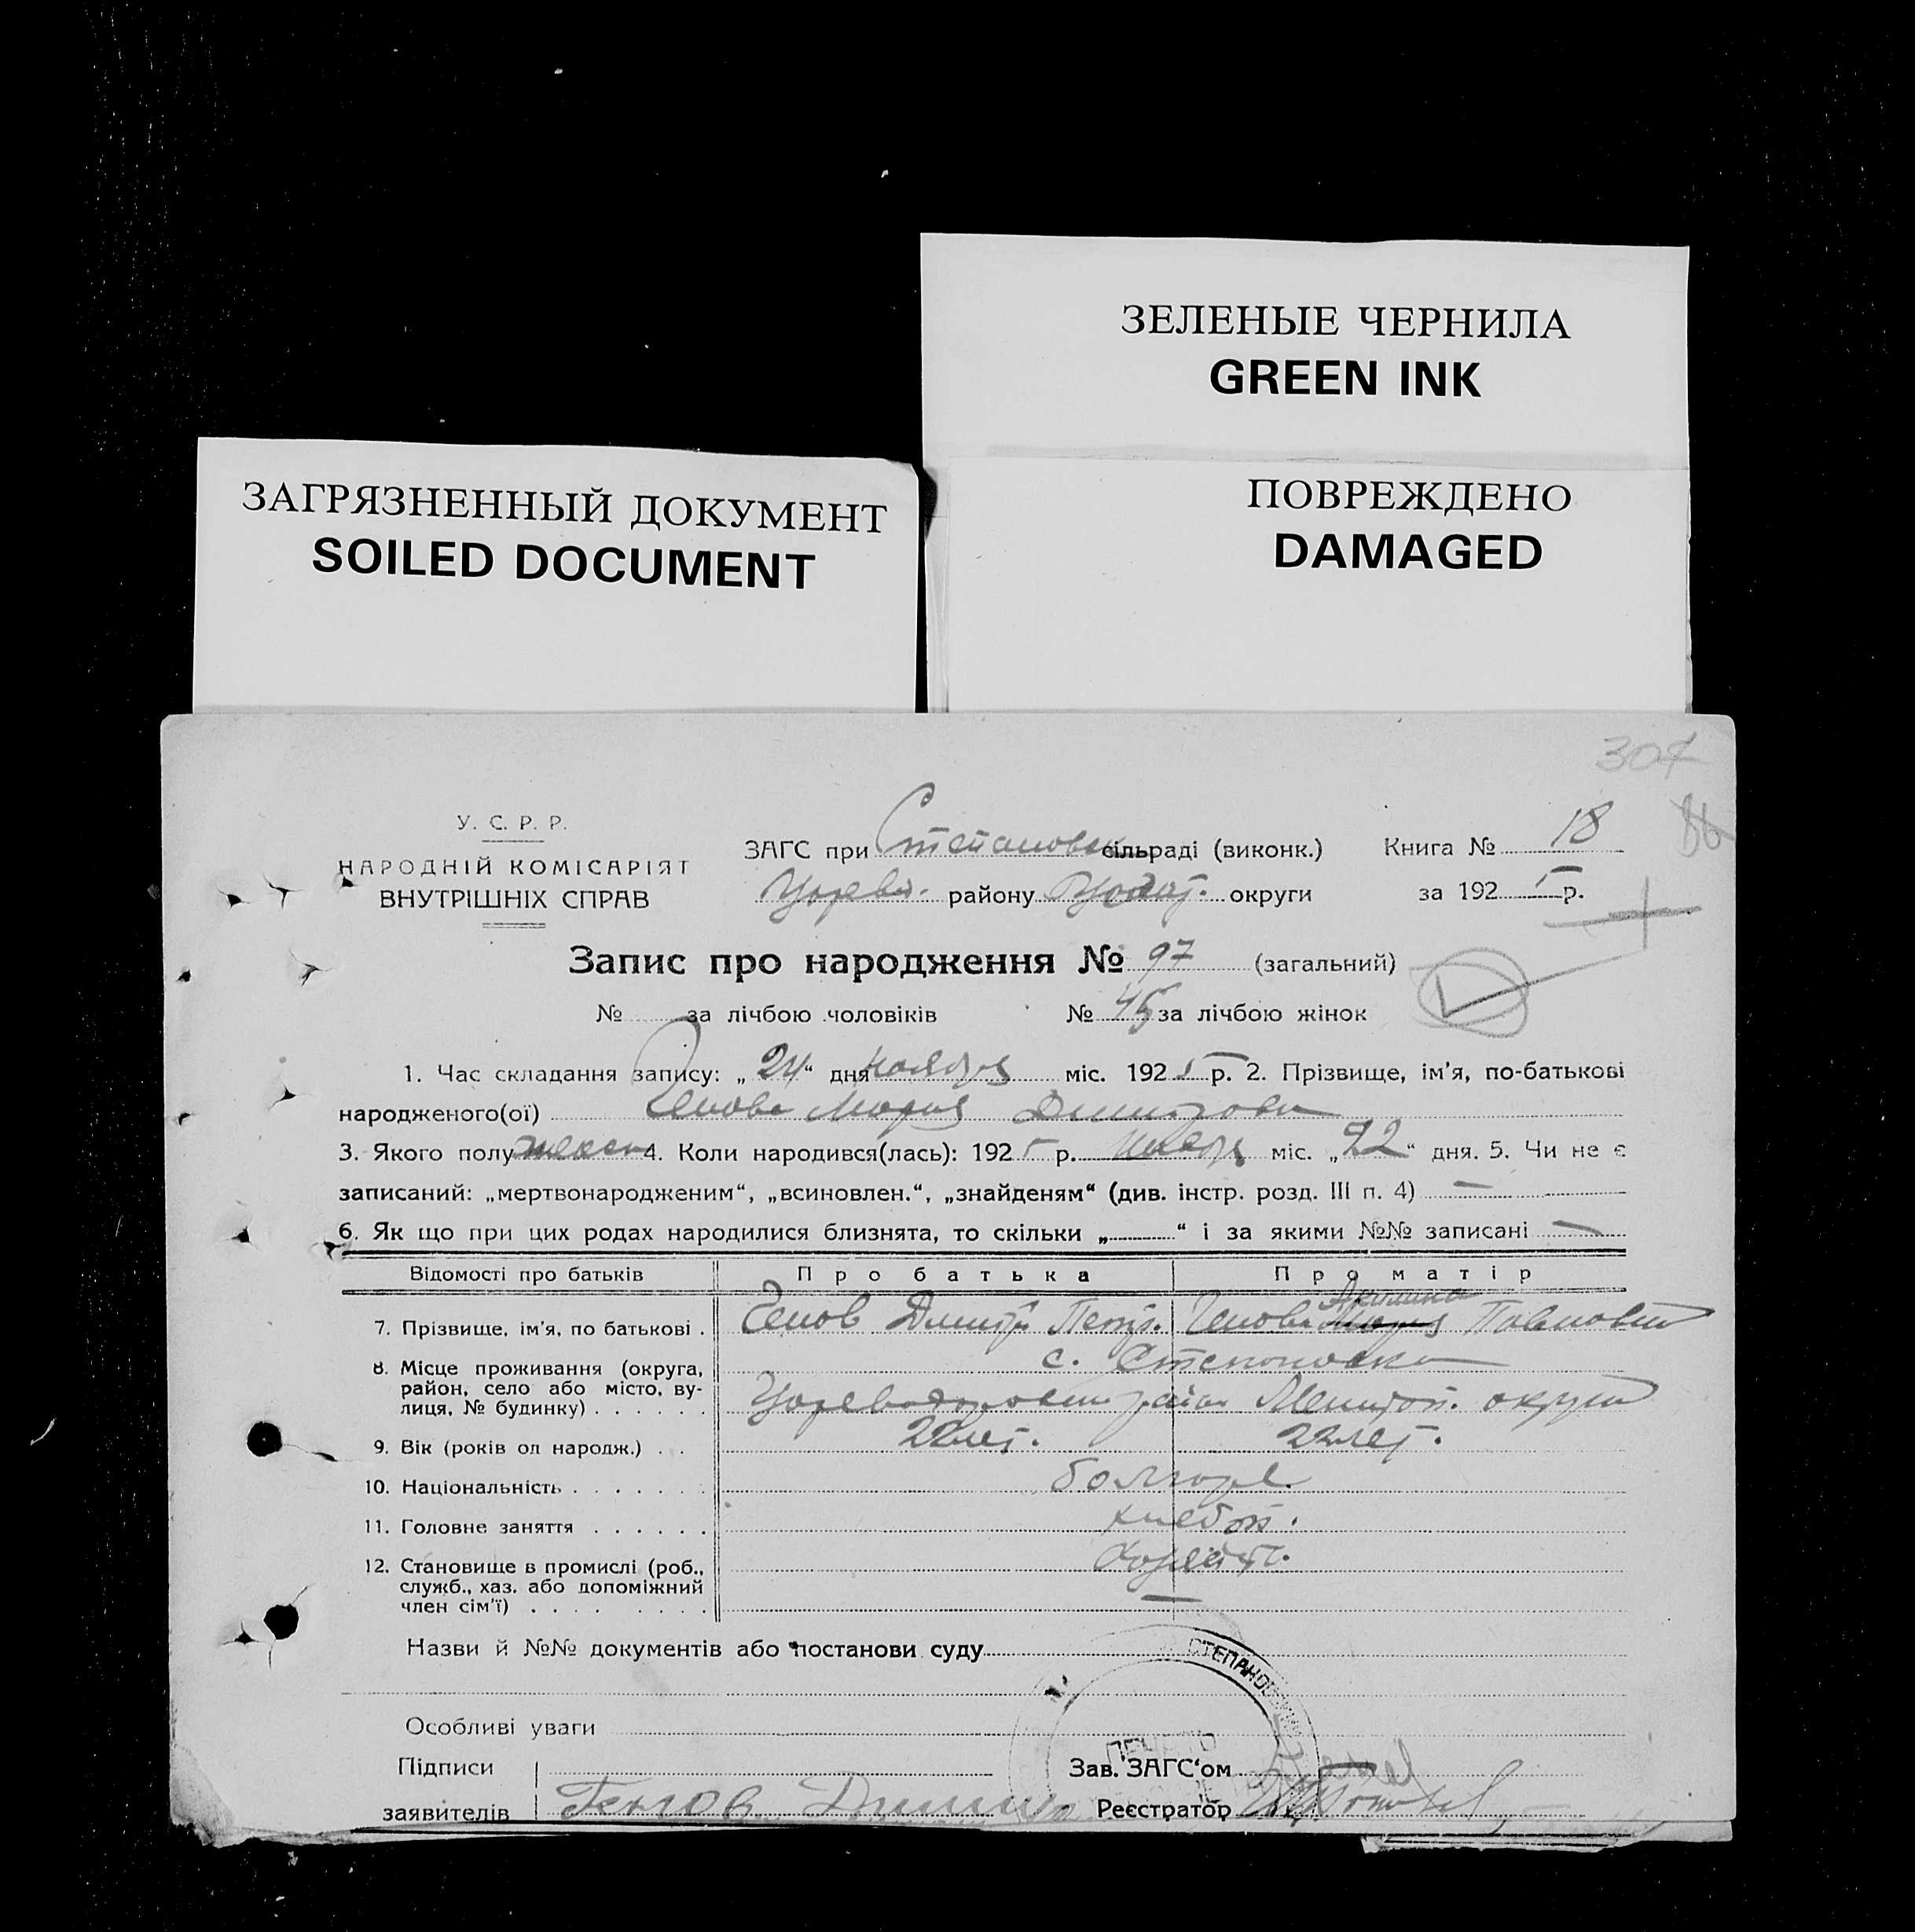 ЗЕЛЕНЫЕ ЧЕРНИЛА
GREEN INK
ЗАГРЯЗНЕННЫЙ ДОКУМЕНТ
SOILED DOCUMENT
ПОВРЕЖДЕНО
DAMAGED
304
У. С. Р. Р.
НАРОДНІЙ КОМІСАРІЯТ
ВНУТРІШНІХ СПРАВ
ЗАГС при Степановск сільраді (виконк.) Книга № 18
Царев. району округи за 192 5 р.
Запис про народження № 97 (загальний)
№ за лічбою чоловіків № 45 за лічбою жінок
1. Час складання запису: „24“ дня ноября міс. 192 5 р. 2. Прізвище, ім’я, по-батькові
народженого(ої) Генова Мария Дмитрова
3. Якого полу женск 4. Коли народився(лась): 192 5 р. ноября міс. „22“ дня. 5. Чи не є
записаний: „мертвонародженим“, „всиновлен.“, „знайденям“ (див. інстр. розд. III п. 4) —
6. Як що при цих родах народилися близнята, то скільки „ “ і за якими №№ записані —
Відомості про батьків Про батька Про матір
7. Прізвище, ім’я, по батькові . Генов Дмитр. Петр. Генова Акилина Павловна
8. Місце проживання (округа, район, село або місто, вулиця, № будинку) . . . . . . с. Степановка
Цареводаровск район Мелитоп. округи
9. Вік (років ол народж.) . . 22 лет. 22 лет.
10. Національність . . . . . . . болгаре
11. Головне заняття . . . . . . хлебоп.
12. Становище в промислі (роб., служб., хаз. або допоміжний член сім’ї) . . . . . . . . —
Назви й №№ документів або постанови суду
СТЕПАНОВ
Особливі уваги
Підписи
заявителів Генов Дмит
Зав. ЗАГС‘ом
Реєстратор